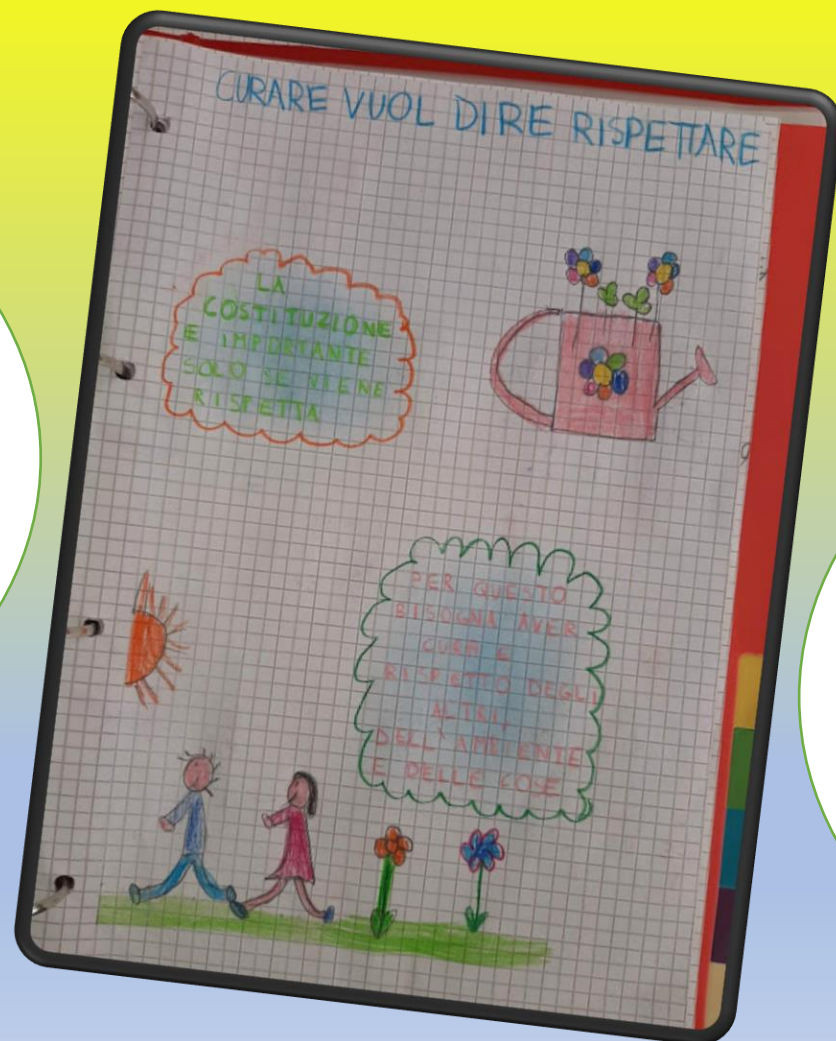 CURARE VUOL DIRE RISPETTARE
LA
COSTITUZIONE
E IMPORTANTE
SOLO SE VIENE
RISPETTA
PER QUESTO
BISOGNA AVER
CURA E
RISPETTO DEGLI
ALTRI,
DELL'AMBIENTE
E DELLE COSE